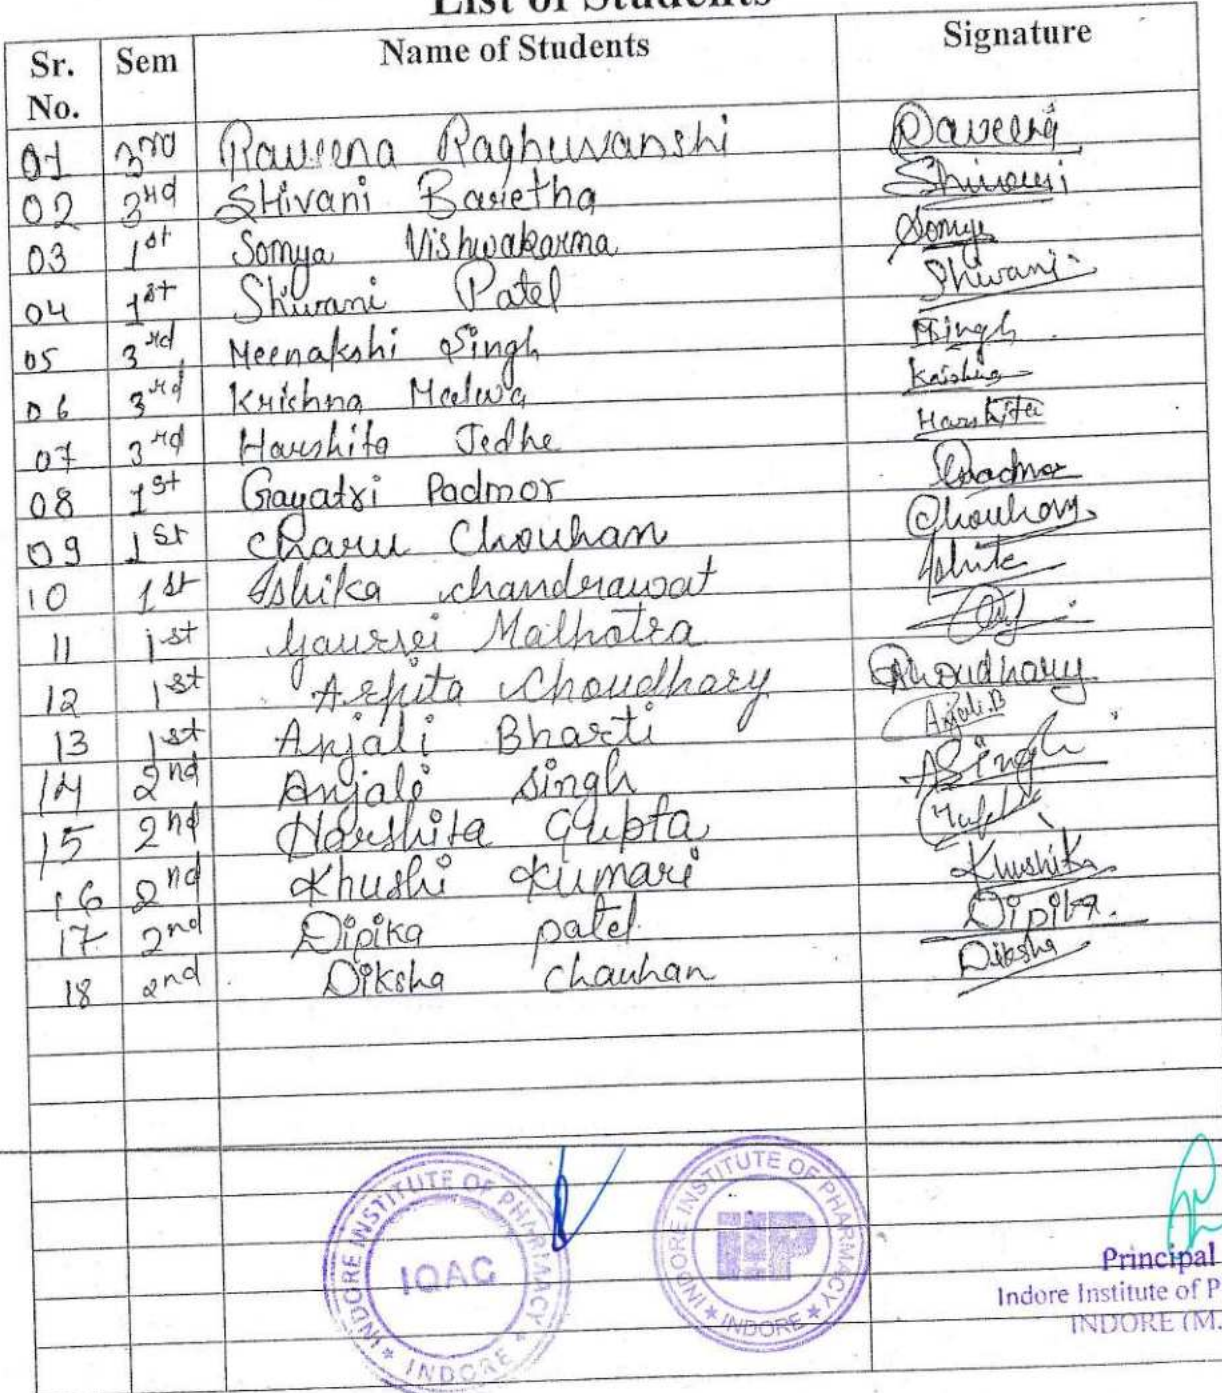 List of Students
Sr. No. Sem Name of Students Signature
01 3rd Raveena Raghuwanshi Raveena
02 3rd Shivani Baretha Shivani
03 1st Somya Vishwakarma Somya
04 1st Shivani Patel Shivani
05 3rd Meenakshi Singh Singh
06 3rd Krishna Malwa Krishna
07 3rd Harshita Jedhe Harshita
08 1st Gayatri Padmor
09 1st Charu Chouhan Chouhan
10 1st Ishika chandrawat Ishika
11 1st Malhotra
12 1st Arpita Choudhary Choudhary
13 1st Anjali Bharti Anjali.B
14 2nd Anjali Singh ASingh
15 2nd Harshita Gupta
16 2nd Khushi Kumari
17 2nd Dipika patel Dipika
18 2nd Diksha Chauhan Diksha
INDORE INSTITUTE OF PHARMACY
IQAC
INDORE
INDORE INSTITUTE OF PHARMACY
IIP
INDORE
Principal
Indore Institute of P
INDORE (M.